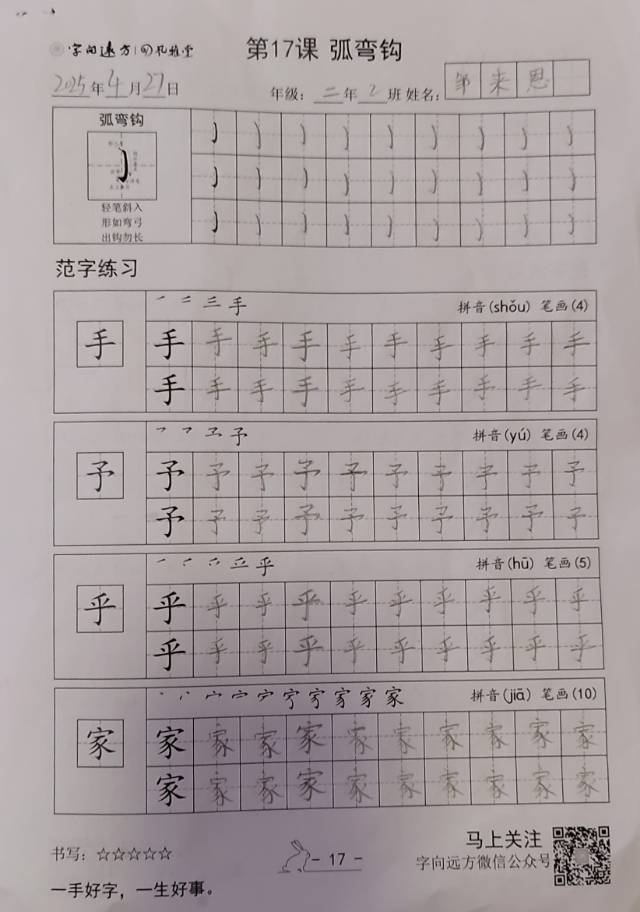 字向远方 第17课 弧弯钩
2025年4月27日 年级：二年2班 姓名：邹来恩
弧弯钩
轻笔斜入
形如弯弓
出钩勿长
范字练习
手 拼音(shǒu) 笔画(4)
手 手 手 手 手 手 手 手 手 手 手
手 手 手 手 手 手 手 手 手 手
予 拼音(yú) 笔画(4)
予 予 予 予 予 予 予 予 予 予 予
予 予 予 予 予 予 予 予 予 予
乎 拼音(hū) 笔画(5)
乎 乎 乎 乎 乎 乎 乎 乎 乎 乎 乎
乎 乎 乎 乎 乎 乎 乎 乎 乎 乎
家 拼音(jiā) 笔画(10)
家 家 家 家 家 家 家 家 家 家 家
家 家 家 家 家 家 家 家 家 家
书写：☆☆☆☆☆ - 17 - 马上关注
字向远方微信公众号
一手好字，一生好事。